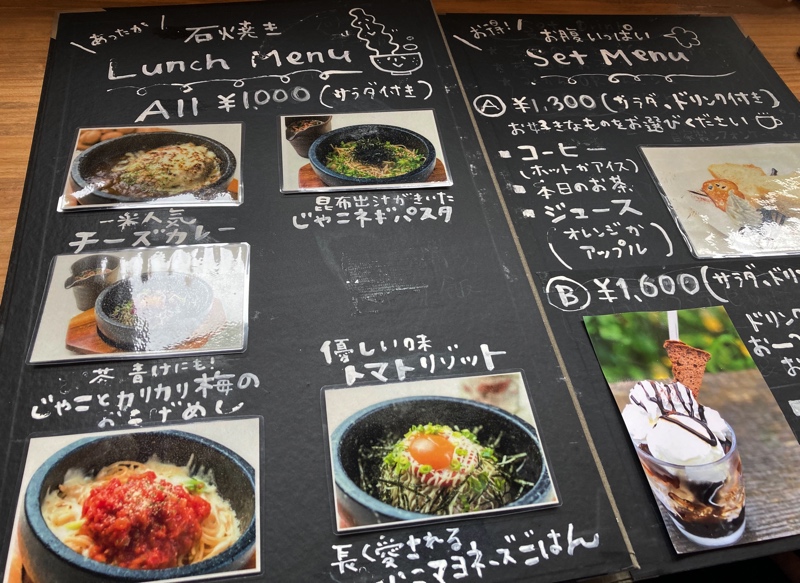 あったか
石焼き
Lunch Menu
All ¥1000 (サラダ付き)
一番人気
チーズカレー
昆布出汁がきいた
じゃこネギパスタ
茶漬けにも!
じゃことカリカリ梅の
優しい味
トマトリゾット
長く愛される
マヨネーズごはん
お得!
お腹いっぱい
Set Menu
A ¥1,300 (サラダ、ドリンク付き)
お好きなものをお選びください
コーヒー
(ホットかアイス)
本日のお茶
ジュース
(オレンジか
アップル)
B ¥1,600 (サラダ、ドリ
ドリンク